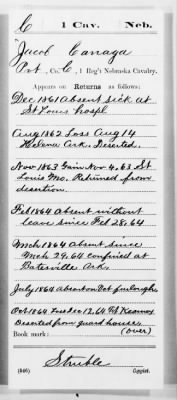 C | 1 Cav. | Neb.
Jacob Canaga
Pvt, Co. C, 1 Reg't Nebraska Cavalry.
Appears on Returns as follows:
Dec 1861 Absent sick at
St Louis hospl
Aug 1862 Loss Aug 14
Helena Ark. Deserted.
Nov 1863 Gain Nov 4.63 St
Louis Mo. Returned from
desertion.
Feb 1864 Absent without
leave since Feb 28.64
Mch 1864 Absent since
Mch 29.64 confined at
Batesville Ark.
July 1864 Absent on Det furloughs
Oct 1864 Loss Dec 12.64 Ft Kearney
Deserted from guard house
Book mark: (over)
Struble
(546) Copyist.